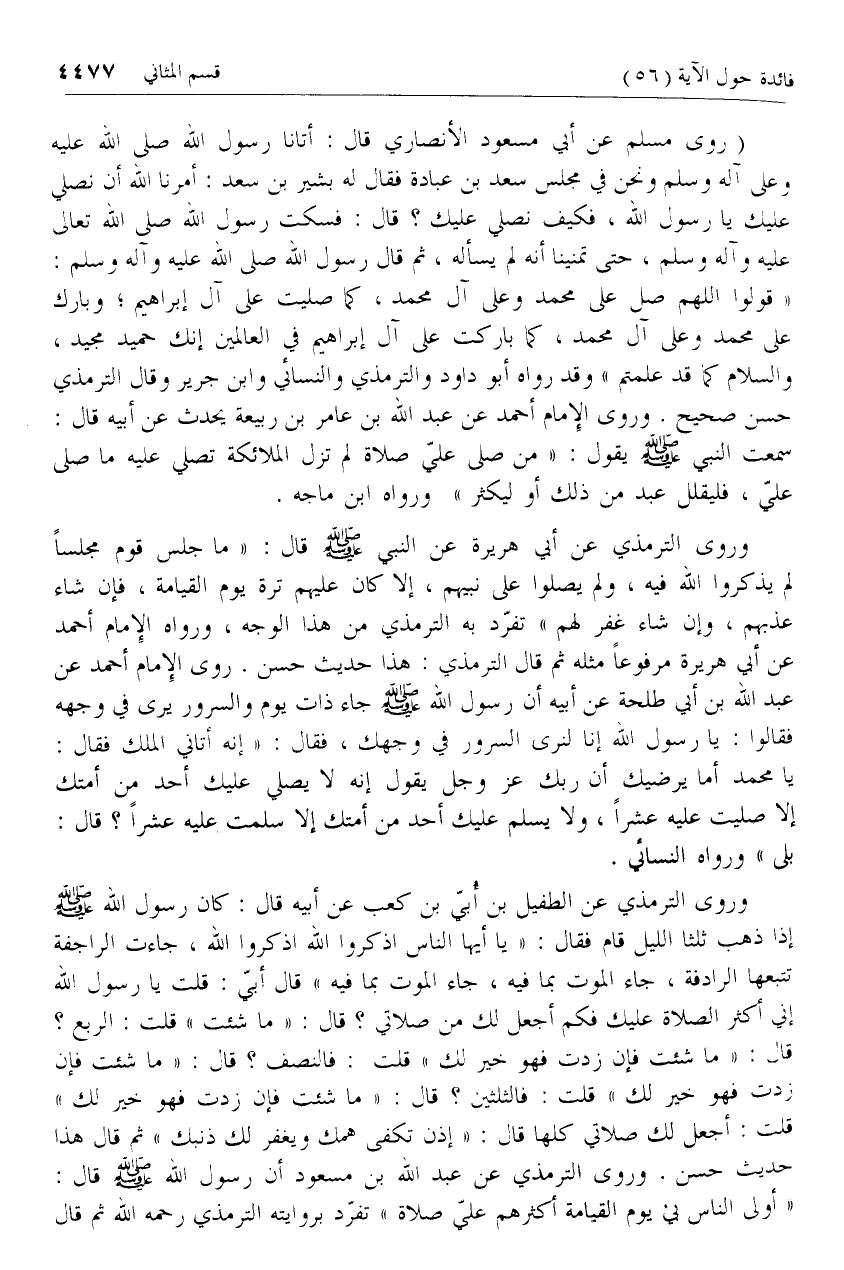 فائدة حول الآية (٥٦) قسم المثاني ٤٤٧٧
( روى مسلم عن أبي مسعود الأنصاري قال : أتانا رسول الله صلى الله عليه
وعلى آله وسلم ونحن في مجلس سعد بن عبادة فقال له بشير بن سعد : أمرنا الله أن نصلي
عليك يا رسول الله ، فكيف نصلي عليك ؟ قال : فسكت رسول الله صلى الله تعالى
عليه وآله وسلم ، حتى تمنينا أنه لم يسأله ، ثم قال رسول الله صلى الله عليه وآله وسلم :
« قولوا اللهم صل على محمد وعلى آل محمد ، كما صليت على آل إبراهيم ؛ وبارك
على محمد وعلى آل محمد ، كما باركت على آل إبراهيم في العالمين إنك حميد مجيد ،
والسلام كما قد علمتم » وقد رواه أبو داود والترمذي والنسائي وابن جرير وقال الترمذي
حسن صحيح . وروى الإمام أحمد عن عبد الله بن عامر بن ربيعة يحدث عن أبيه قال :
سمعت النبي ﷺ يقول : « من صلى عليّ صلاة لم تزل الملائكة تصلي عليه ما صلى
عليّ ، فليقلل عبد من ذلك أو ليكثر » ورواه ابن ماجه .
وروى الترمذي عن أبي هريرة عن النبي ﷺ قال : « ما جلس قوم مجلساً
لم يذكروا الله فيه ، ولم يصلوا على نبيهم ، إلا كان عليهم ترة يوم القيامة ، فإن شاء
عذبهم ، وإن شاء غفر لهم » تفرّد به الترمذي من هذا الوجه ، ورواه الإمام أحمد
عن أبي هريرة مرفوعاً مثله ثم قال الترمذي : هذا حديث حسن . روى الإمام أحمد عن
عبد الله بن أبي طلحة عن أبيه أن رسول الله ﷺ جاء ذات يوم والسرور يرى في وجهه
فقالوا : يا رسول الله إنا لنرى السرور في وجهك ، فقال : « إنه أتاني الملك فقال :
يا محمد أما يرضيك أن ربك عز وجل يقول إنه لا يصلي عليك أحد من أمتك
إلا صليت عليه عشراً ، ولا يسلم عليك أحد من أمتك إلا سلمت عليه عشراً ؟ قال :
بلى » ورواه النسائي .
وروى الترمذي عن الطفيل بن أُبيّ بن كعب عن أبيه قال : كان رسول الله ﷺ
إذا ذهب ثلثا الليل قام فقال : « يا أيها الناس اذكروا الله اذكروا الله ، جاءت الراجفة
تتبعها الرادفة ، جاء الموت بما فيه ، جاء الموت بما فيه » قال أبيّ : قلت يا رسول الله
إني أكثر الصلاة عليك فكم أجعل لك من صلاتي ؟ قال : « ما شئت » قلت : الربع ؟
قال : « ما شئت فإن زدت فهو خير لك » قلت : فالنصف ؟ قال : « ما شئت فإن
زدت فهو خير لك » قلت : فالثلثين ؟ قال : « ما شئت فإن زدت فهو خير لك »
قلت : أجعل لك صلاتي كلها قال : « إذن تكفى همك ويغفر لك ذنبك » ثم قال هذا
حديث حسن . وروى الترمذي عن عبد الله بن مسعود أن رسول الله ﷺ قال :
« أولى الناس بي يوم القيامة أكثرهم عليّ صلاة » تفرّد بروايته الترمذي رحمه الله ثم قال